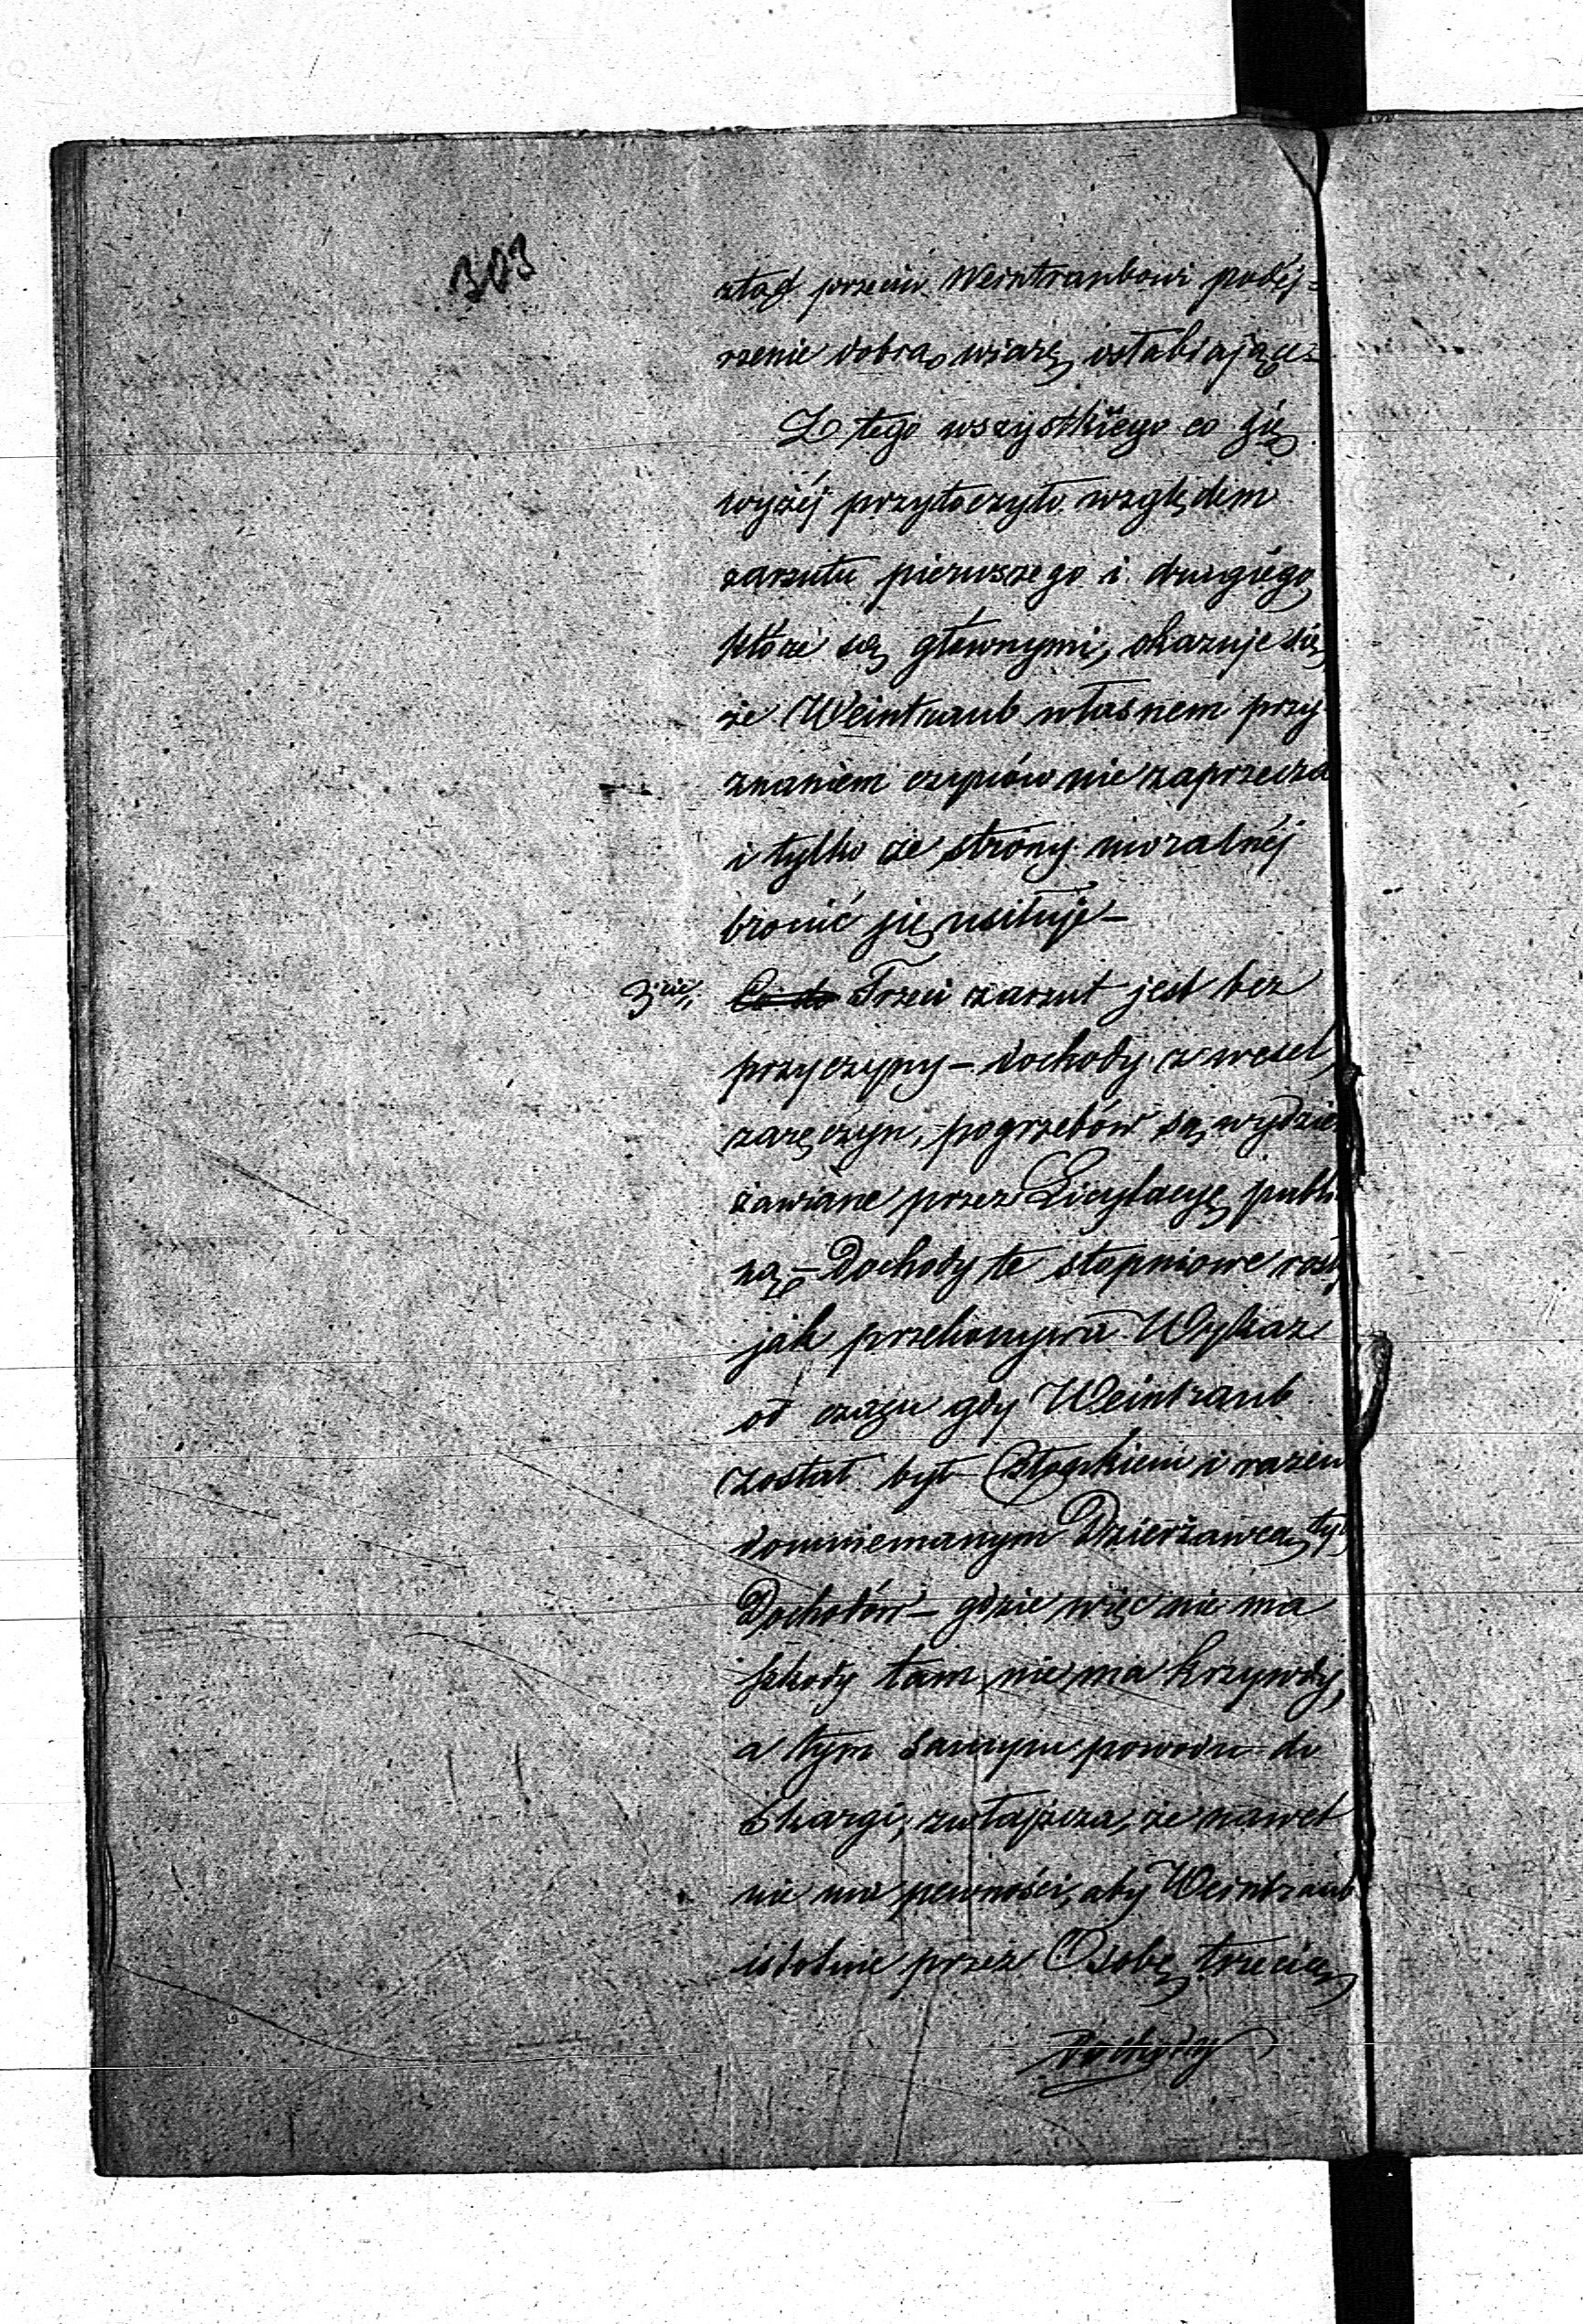 303
ztąd przeciw Weintraubowi podej-
rzenie dobrą wiarę osłabiające-
Z tego wszystkiego co się
wyżéj przytoczyło względem
zarzutu pierwszego i drugiego,
które są głównymi, okazuje się,
że Weintraub własnem przy
znaniem czynów nie zaprzecza
i tylko ze strony moralnéj
bronić się usiłuje -
3cie, Co do Trzeci zarzut jest bez
przyczyny - dochody z wesel,
zaręczyn, pogrzebów są wydzier
żawiane przez Licytacyę publi
ną - Dochody te stopniowe rosły
jak przekonywa Wykaz
od czasu gdy Weintraub
został był Członkiem i razem
domniemanym Dzierżawcą tych
Dochodów - gdzie więc nie ma
szkody tam nie ma krzywdy,
a tym samym powodu do
skargi, zwłaszcza, że nawet
nie ma pewności, aby Weintraub
istotnie przez Osobę trzecią
dochody